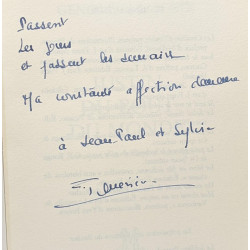 Passent
Les jours
et passent les semaines
Ma constante affection
à Jean-Paul et Sylvie